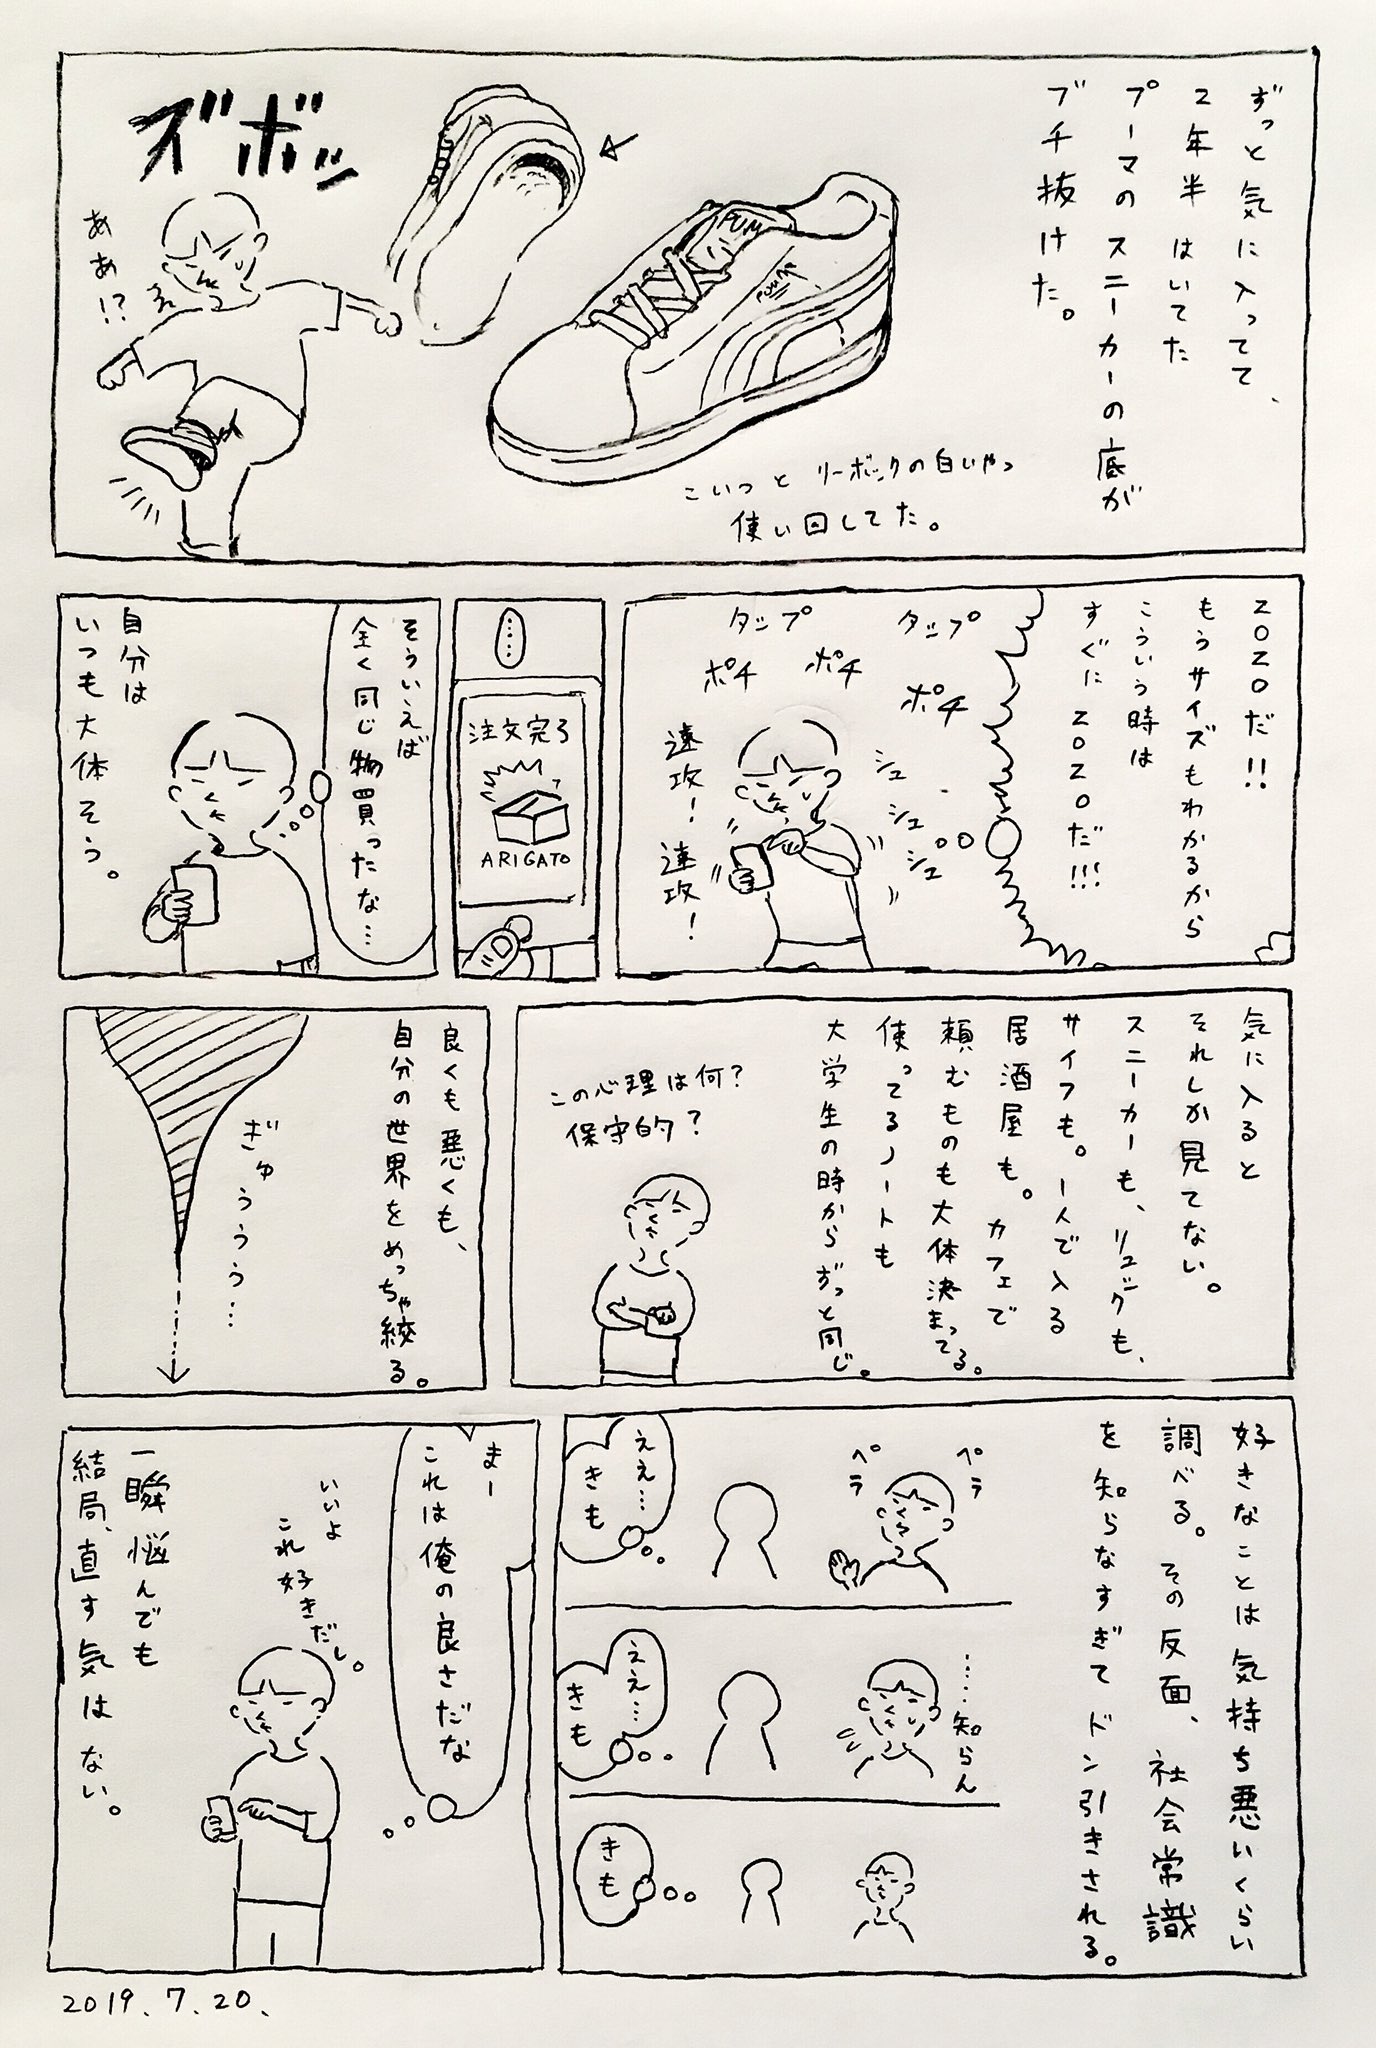 ずっと気に入ってて、
2年半はいてた
プーマのスニーカーの底が
ブチ抜けた。
PUM
PUMA
こいつとリーボックの白いやつ
使い回してた。
ズボッ
ああ!?
ZOZOだ!!
もうサイズもわかるから
こういう時は
すぐにZOZOだ!!!
タップ
タップ
ポチ
ポチ
ポチ
シュ
シュ
シュ
速攻!
速攻!
……
注文完了
ARIGATO
そういえば
全く同じ物買ったな…
自分は
いつも大体そう。
気に入ると
それしか見てない。
スニーカーも、リュックも、
サイフも。1人で入る
居酒屋も。カフェで
頼むものも大体決まってる。
使ってるノートも
大学生の時からずっと同じ。
この心理は何?
保守的?
良くも悪くも、
自分の世界をめっちゃ絞る。
ぎゅううう…
好きなことは気持ち悪いくらい
調べる。その反面、社会常識
を知らなすぎてドン引きされる。
ペラ
ペラ
ええ…
きも
……知らん
ええ…
きも
きも
まー
これは俺の良さだな
いいよ
これ好きだし。
一瞬悩んでも
結局、直す気はない。
2019.7.20.